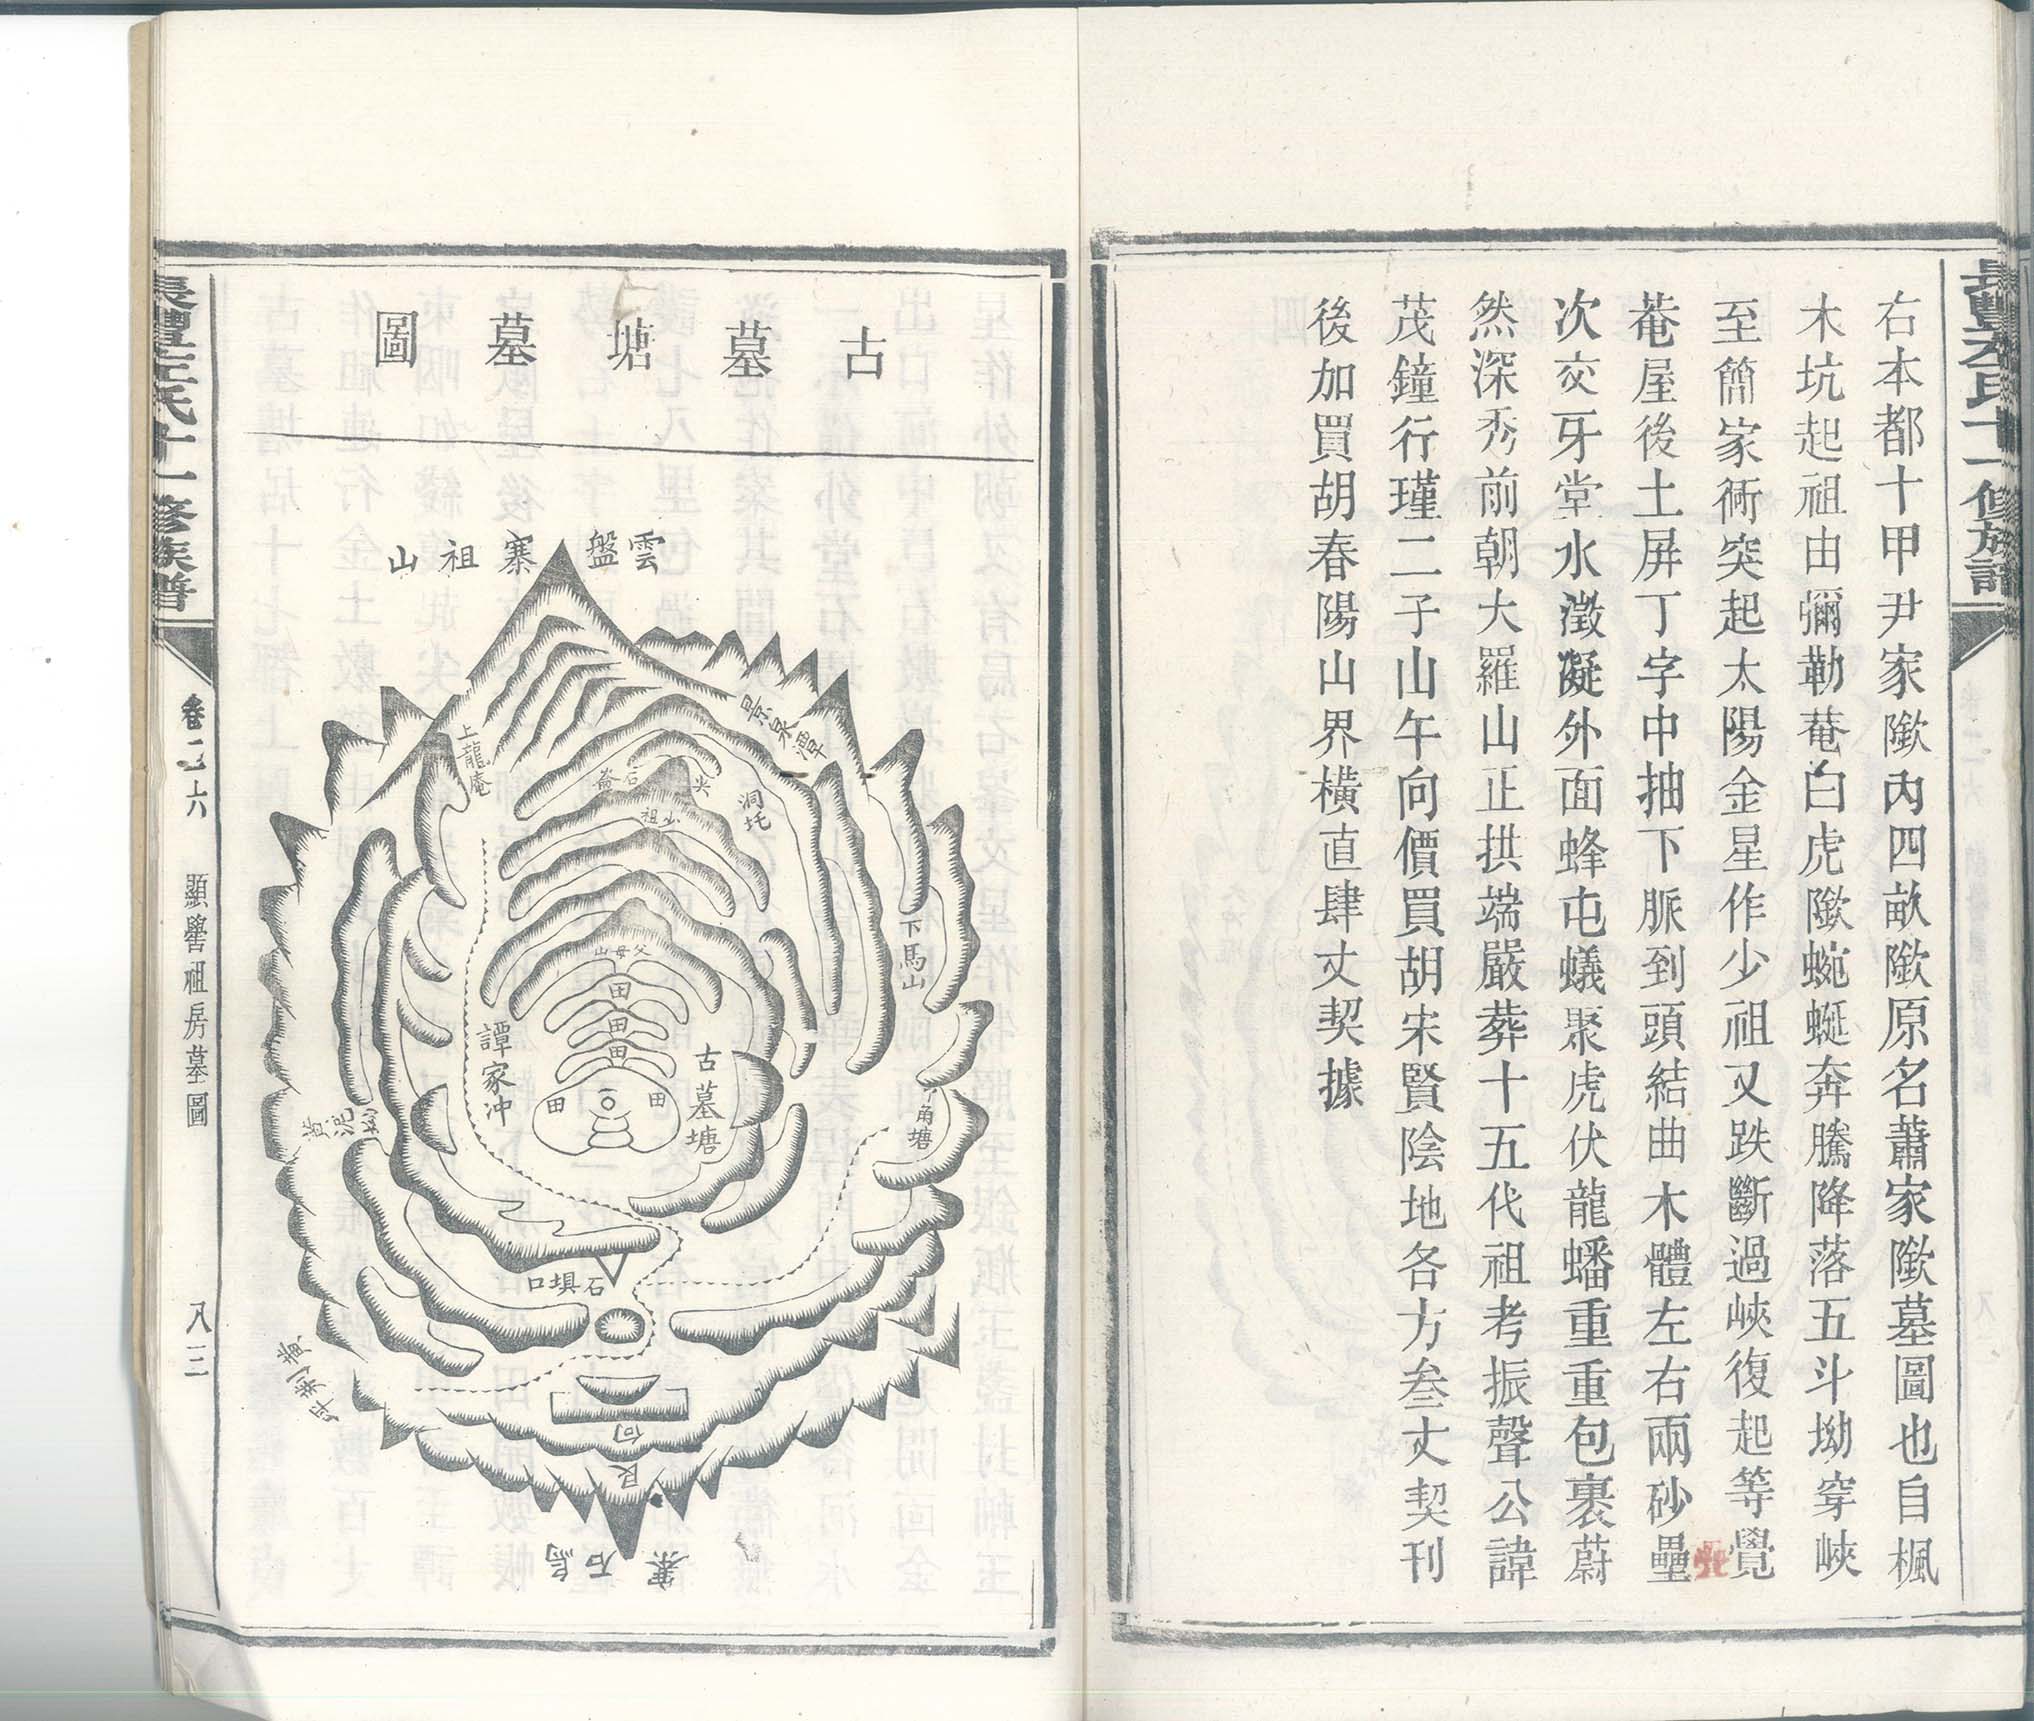 右本都十甲尹家隞內四畝隞原名蕭家隞墓圖也自楓
木坑起祖由彌勒菴白虎隞蜿蜒奔騰降落五斗坳穿峽
至簡家衕突起太陽金星作少祖又跌斷過峽復起等覺
菴屋後土屏丁字中抽下脈到頭結曲木體左右兩砂壘
次交牙堂水澂凝外面蜂屯蟻聚虎伏龍蟠重重包裹蔚
然深秀前朝大羅山正拱端嚴葬十五代祖考振聲公諱
茂鐘行瑾二子山午向價買胡宋賢陰地各方叁丈契刊
後加買胡春陽山界橫直肆丈契據
古墓塘墓圖
雲盤寨祖山
上龍庵
尖石崙
少祖
洞圫
下馬山
父母山
田
田
田
田
田
古墓塘
譚家冲
黃泥坳
角塘
石埧口
黃荆坪
向
艮
寨石烏
氏十一修族譜
卷二六
顯譽祖房墓圖
八三